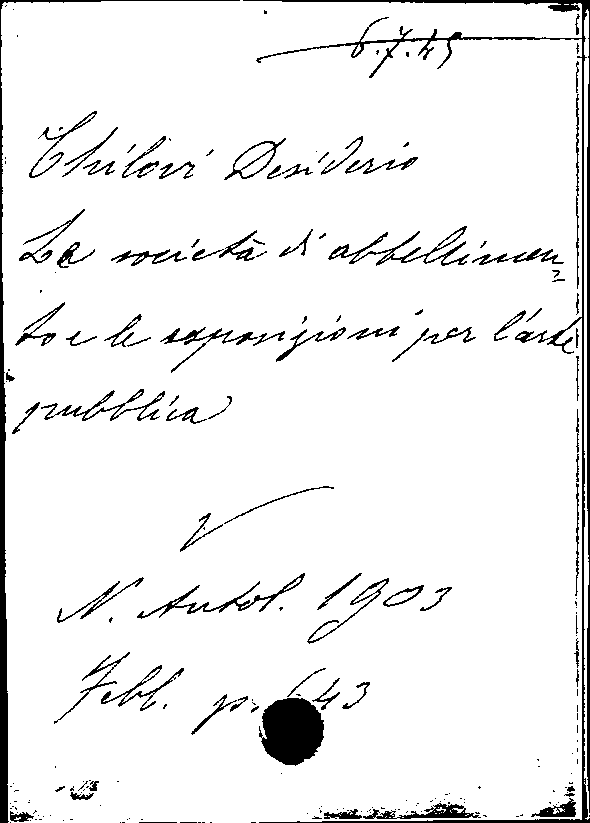 6.7.45
Chilovi Desiderio
Le società di abbellimen=
to e le esposizioni per l'arte
pubblica
N. Antol. 1903
Febb. p. 643